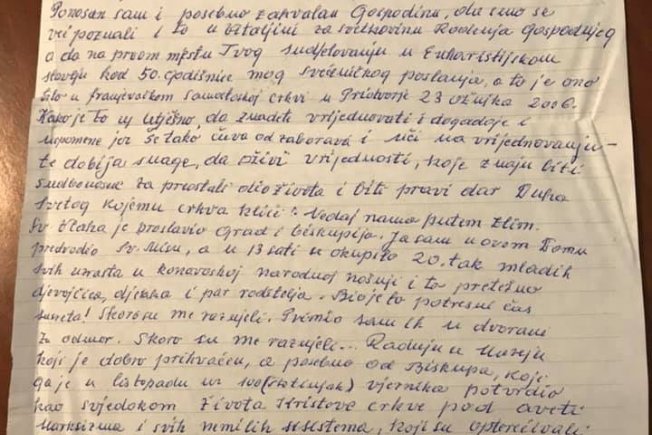 Ponosan sam i posebno zahvalan Gospodinu, da smo se
svi poznali i to u ozračju za svetkovinu Rođenja Gospodnjeg
a da na prvom mjestu Tvog sudjelovanju u Euharistijskom
slavju kod 50. godišnice mog svećeničkog poslanja, a to je ono
bilo u franjevačkom samostanskoj crkvi u Pridvorje 23 ožujka 2006.
Kako je to utješno, da znadete vrijednovati i događaje i
uspomene jer se tako čuva od zaborava i uči na vrijednovanju
te dobija snage, da oživi vrijednosti, koje znaju biti
sudbonosne za preostali dio života i biti pravi dar Duha
svetog kojemu crkva kliči: Vodaj nama putem
Sv Vlaha je proslavio Grad i biskupija. Ja sam u ovom Domu
predvodio Sv. Misu, a u 13 sati se okupilo 20. tak mladih
svih uzrasta u konavoskoj narodnoj nošnji i to pretežno
djevojčica, dječaka i par roditelja. Bio je to potresni čas
susreta! Skoro su me raznjeli. Primio sam ih u dvorani
za odmor. Skoro su me raznjeli... Raduje u
koji je dobro prihvaćen, a posebno od Biskupa, koji
ga je u listopadu uz 100 vjernika potvrdio
kao svjedokom života Kristove crkve pod aveti
Marksizma i svih nemilih sistema, koji su opterećivali